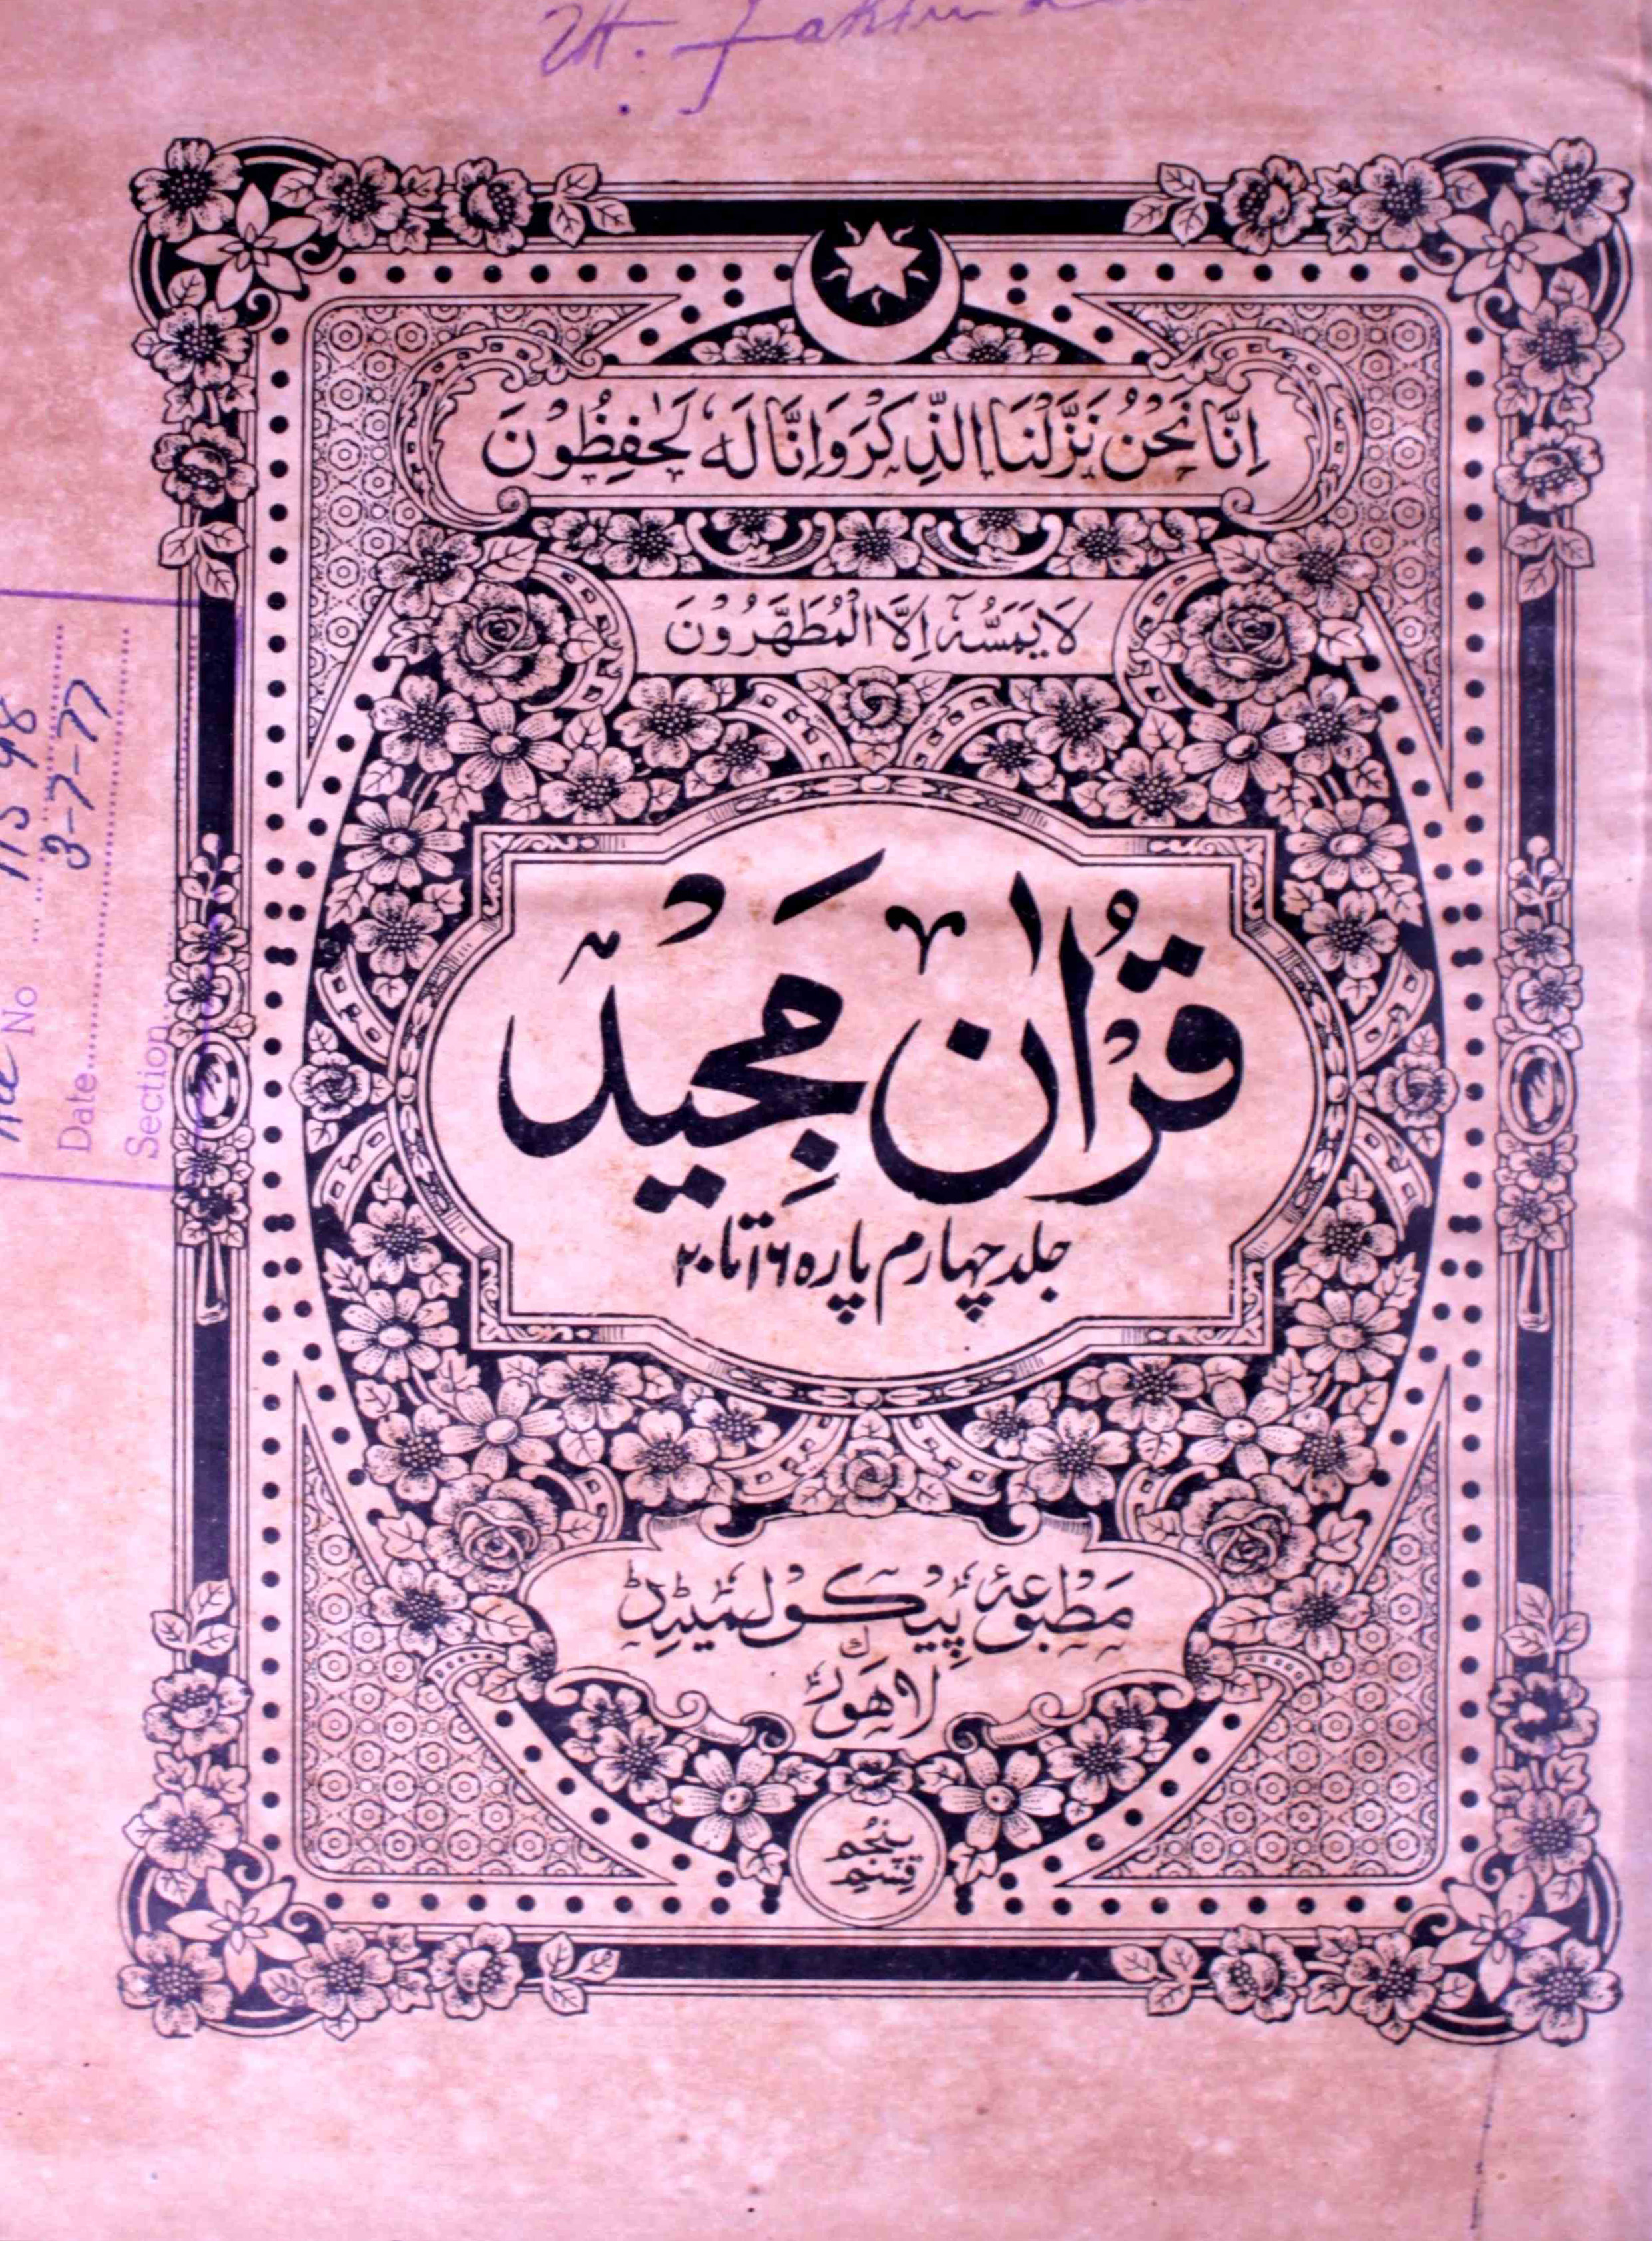 اِنَّا نَحْنُ نَزَّلْنَا الذِّكْرَ وَاِنَّا لَهٗ لَحٰفِظُوْنَ
لَا يَمَسُّهٗٓ اِلَّا الْمُطَهَّرُوْنَ
قُرْاٰن مَجِيْد
جلد چہارم پارہ ۱۶ تا ۲۰
مَطْبُوْعَۂ پِيْكُو لِمِيْٹِڈْ
لَاهَوْرْ
پنجُم
قِسْم
No 11598
Date 3-7-77
Section